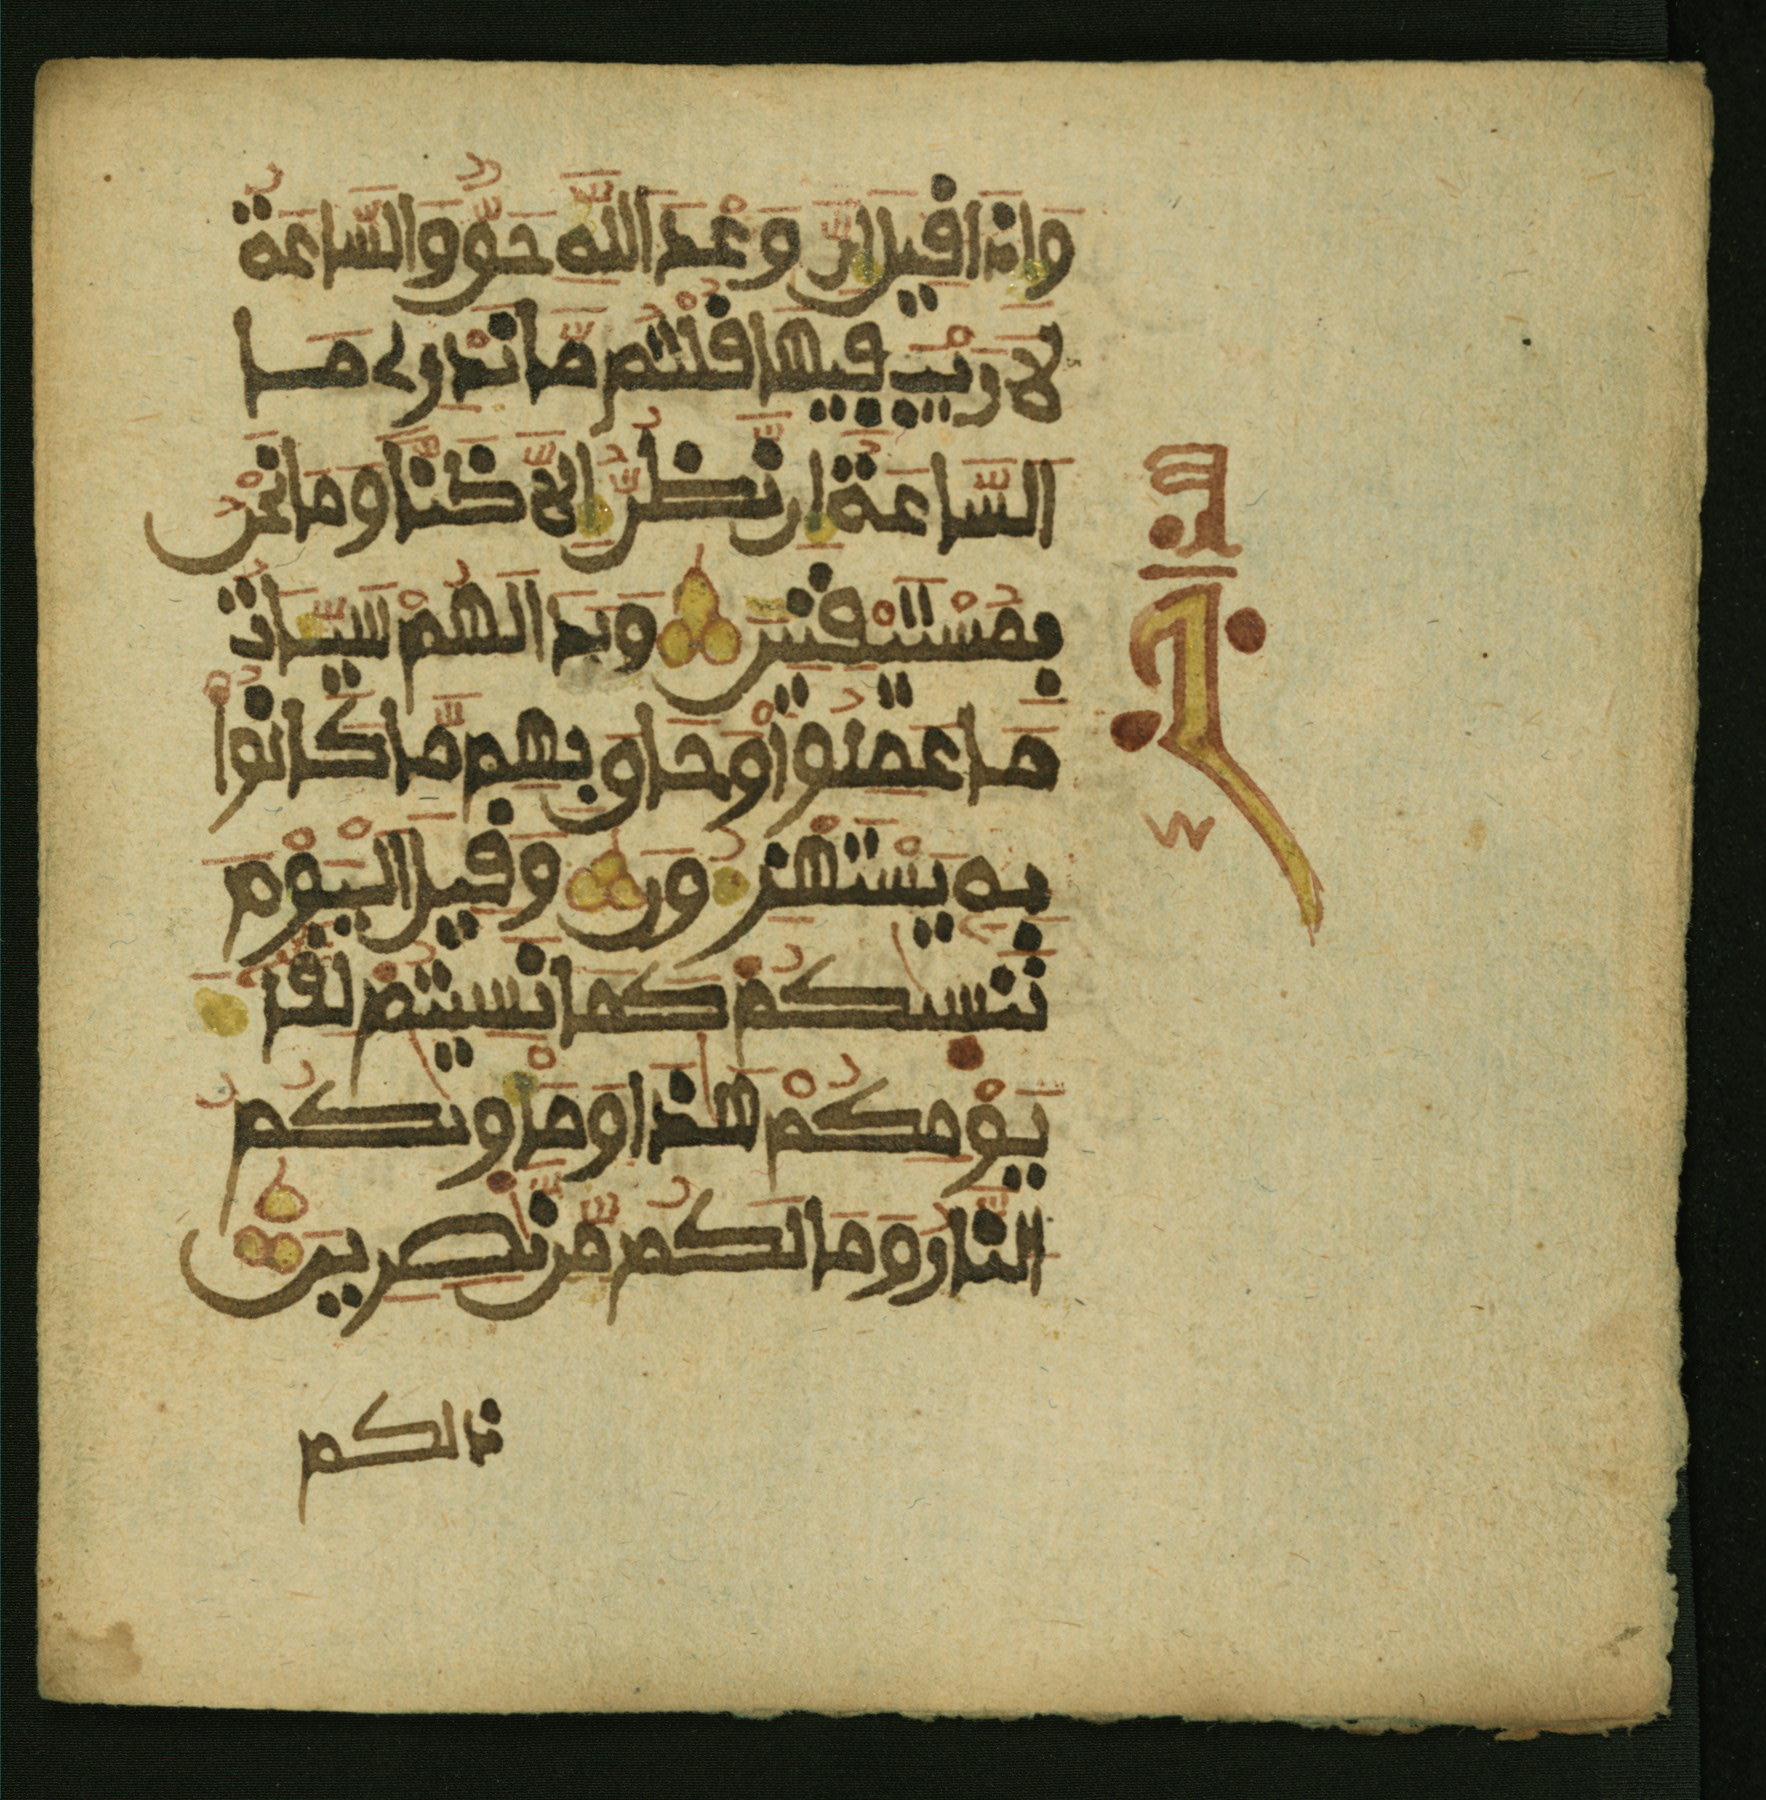 وَإِذَا قِيلَ إِنَّ وَعْدَ اللَّهِ حَقٌّ وَالسَّاعَةُ
لَا رَيْبَ فِيهَا قُلْتُم مَّا نَدْرِي مَا
السَّاعَةُ إِن نَّظُنُّ إِلَّا ظَنًّا وَمَا نَحْنُ
بِمُسْتَيْقِنِينَ وَبَدَا لَهُمْ سَيِّئَاتُ
مَا عَمِلُوا وَحَاقَ بِهِم مَّا كَانُوا
بِهِ يَسْتَهْزِءُونَ وَقِيلَ الْيَوْمَ
نَنسىكُمْ كَمَا نَسِيتُمْ لِقَاءَ
يَوْمِكُمْ هَٰذَا وَمَأْوىكُمُ
النَّارُ وَمَا لَكُم مِّن نَّٰصِرِينَ
ذالكم